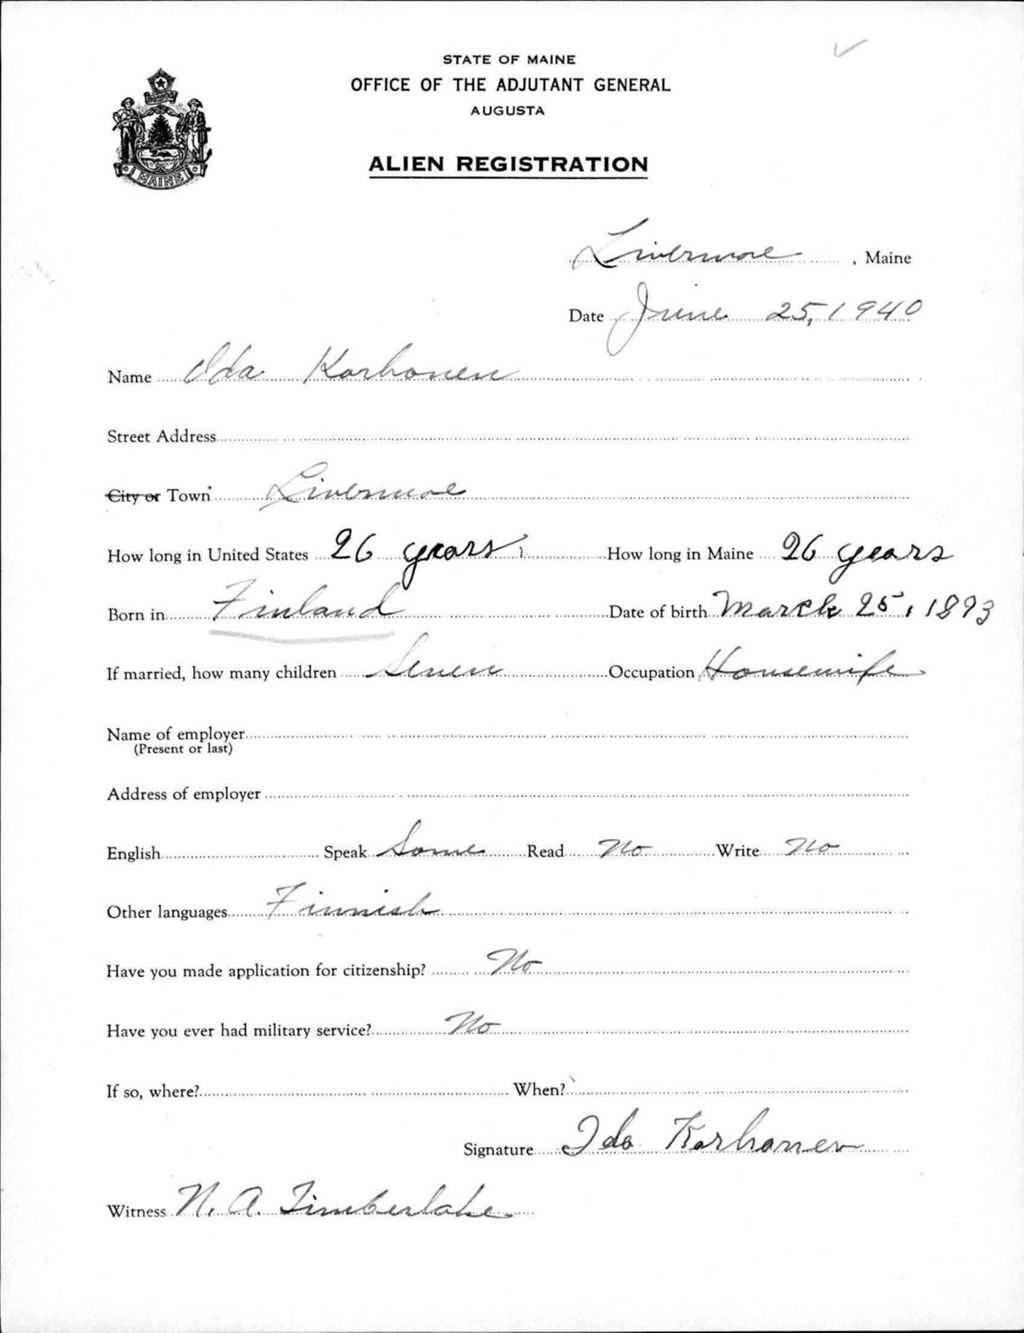 STATE OF MAINE
OFFICE OF THE ADJUTANT GENERAL
AUGUSTA
ALIEN REGISTRATION
MAINE
Livermore, Maine
Date June 25, 1940
Name Ida Korhonen
Street Address
City or Town Livermore
How long in United States 26 years, How long in Maine 26 years
Born in Finland Date of birth March 25, 1893
If married, how many children Seven Occupation Housewife
Name of employer
(Present or last)
Address of employer
English Speak Some Read No Write No
Other languages Finnish
Have you made application for citizenship? No
Have you ever had military service? No
If so, where? When?
Signature Ida Korhonen
Witness N. A. Timberlake